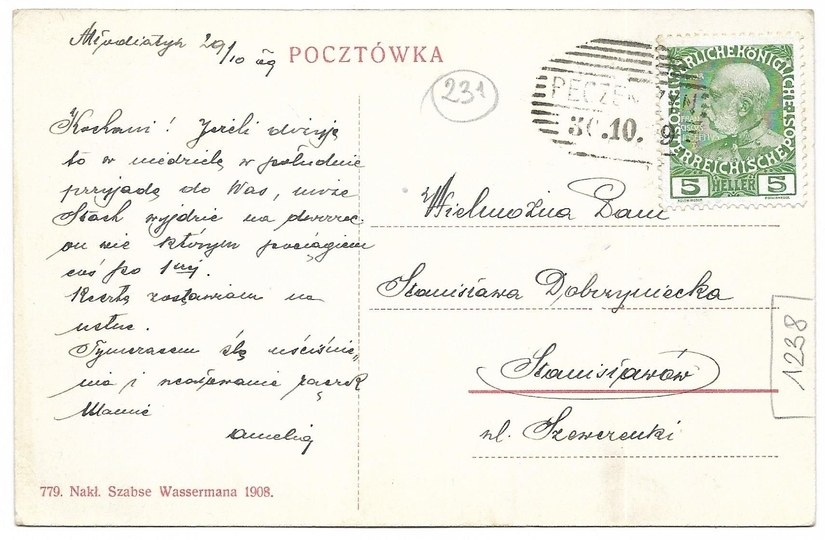 29/10 09
POCZTÓWKA
231
PECZEN
30.10. 9
KAISERLICHEKÖNIGLICHE
ÖSTERREICHISCHE POST
5 HELLER 5
Kochani! Jeżeli dożyję
to w niedzielę w południe
przyjadę do Was, może
Stach wyjdzie na dworzec
on wie którym pociągiem
coś po 1szej.
Resztę zostawiam na
ustne.
Tymczasem ślę uściśnie,
nia i ucałowanie rączek
Mamie
Wielmożna Pani
Stanisława Dobrzyniecka
Stanisławów
ul. Szewczenki
1238
779. Nakł. Szabse Wassermana 1908.